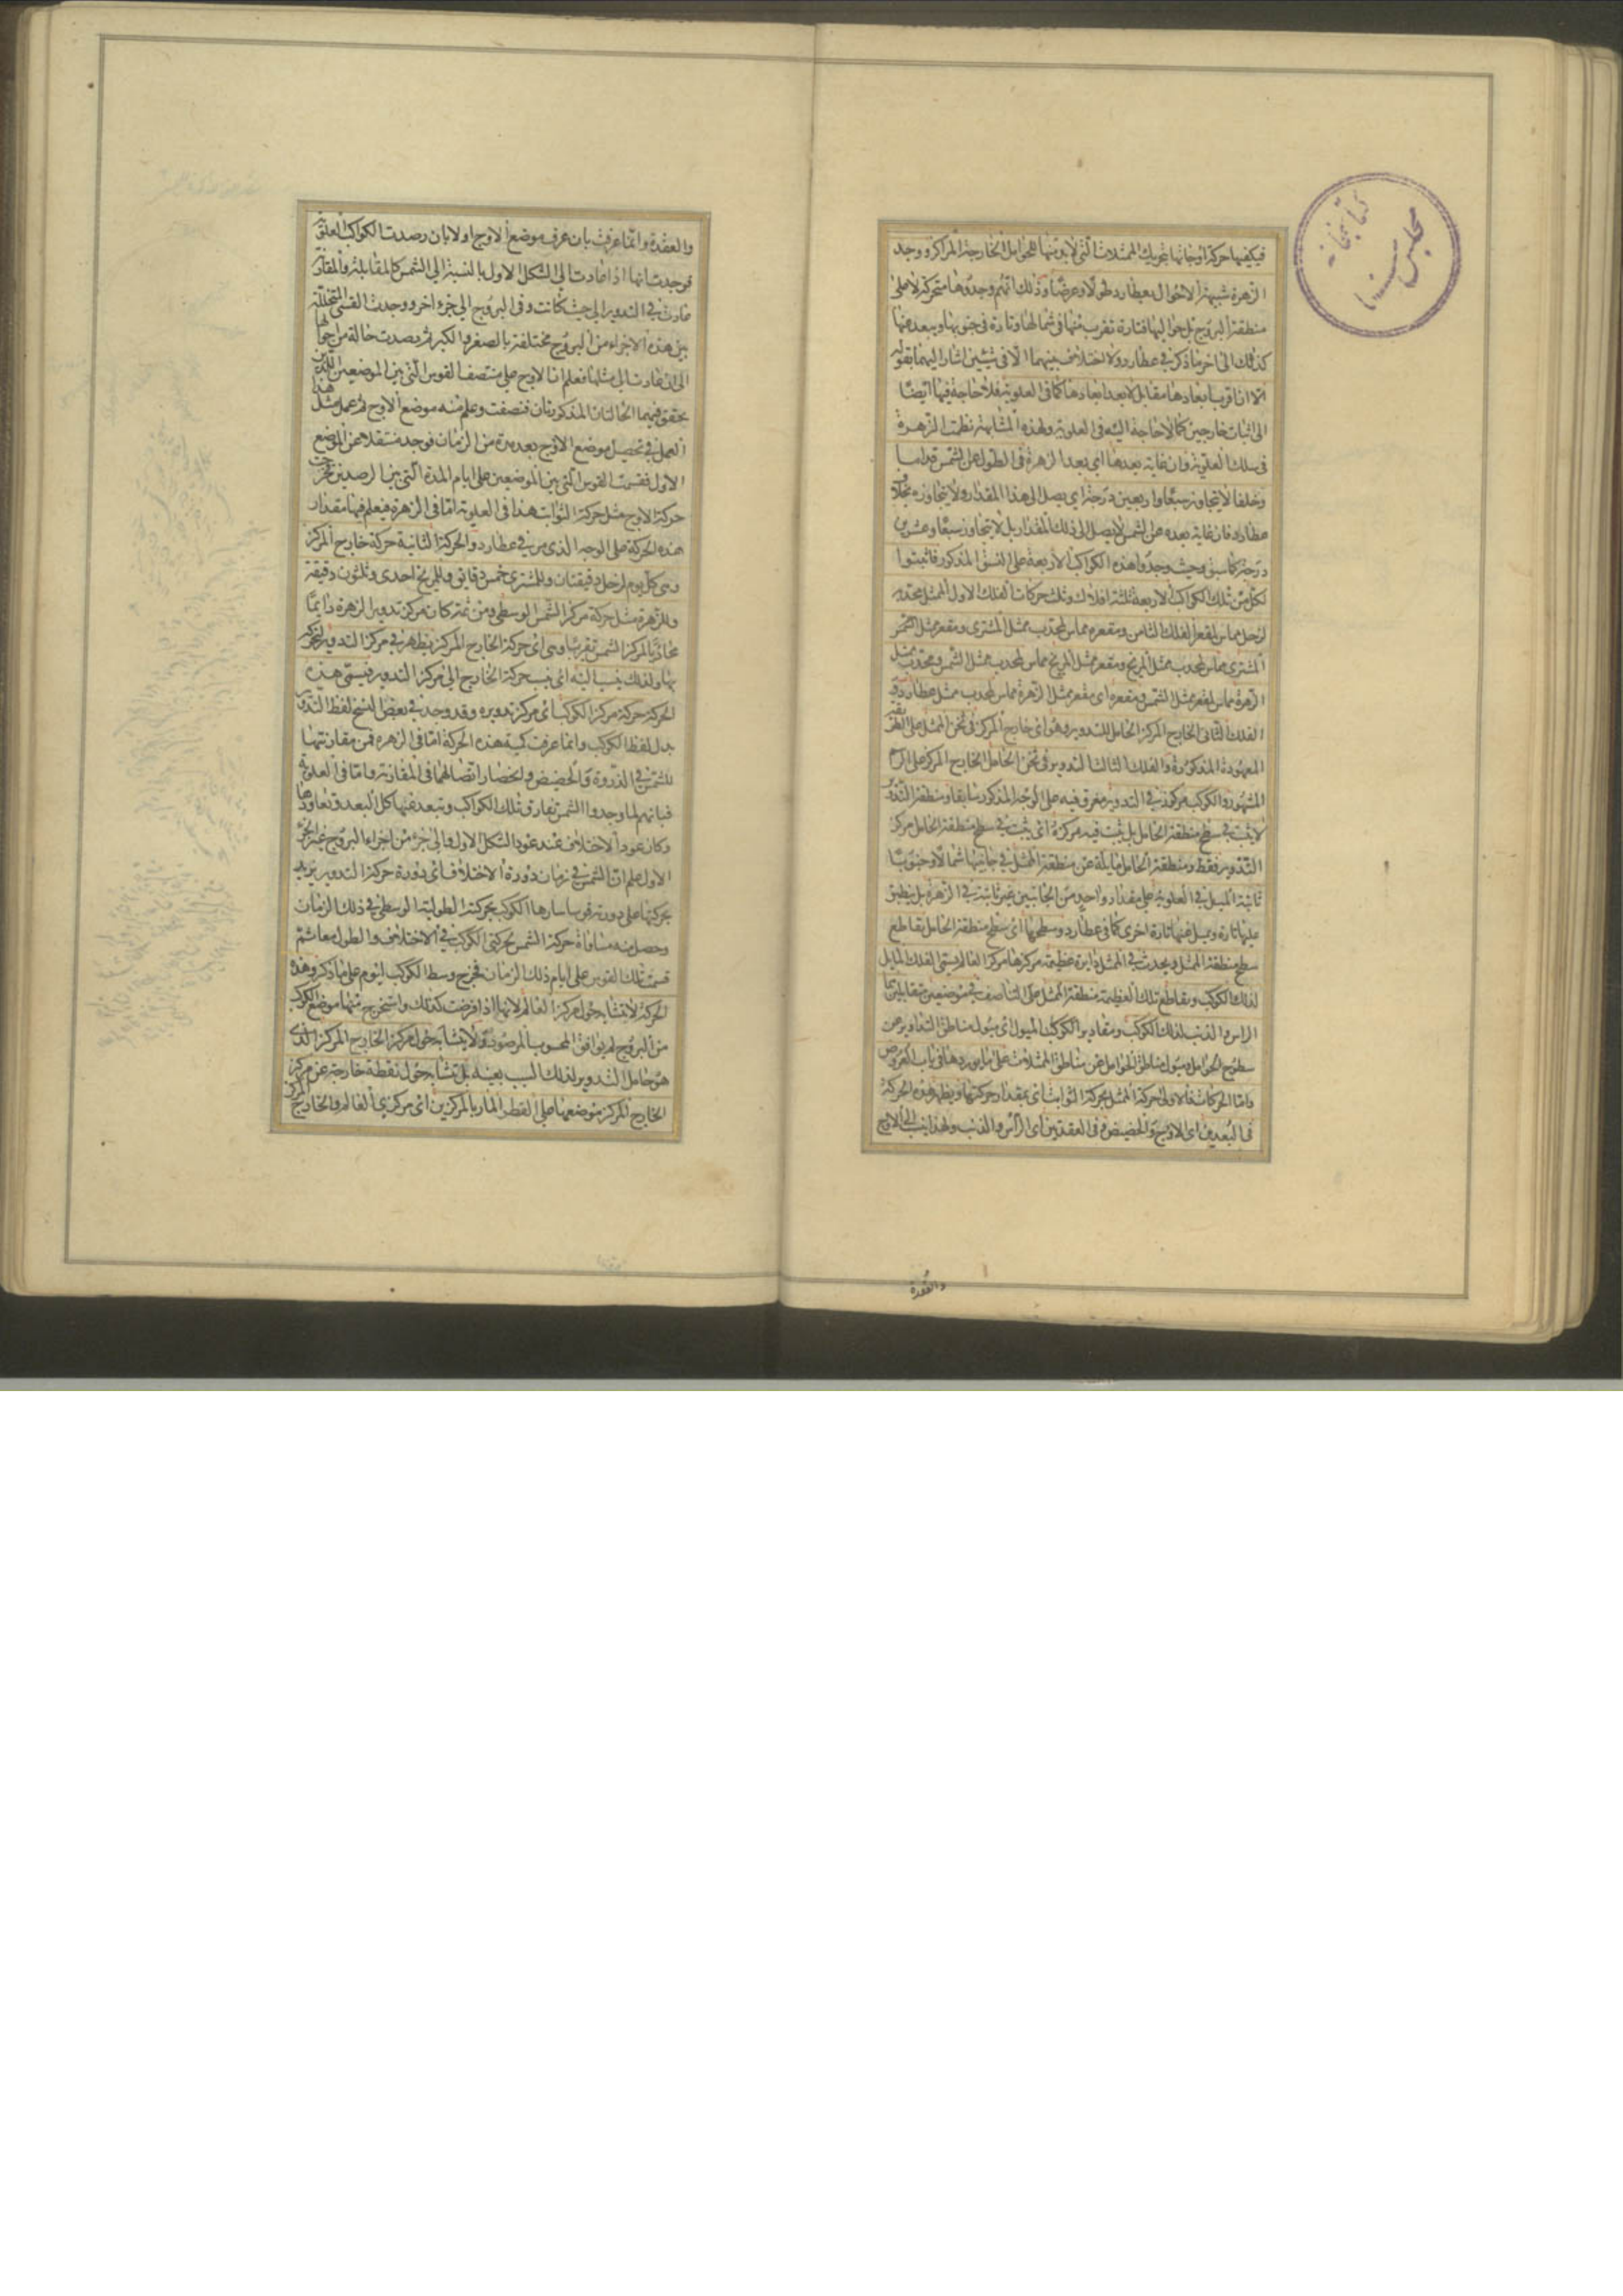 فيكفيها حركة اوجاتها بتحريك الممثلات التى لا بد منها للحوامل الخارجة المراكز ووجد
الزهرة شبيهة الاحوال بعطارد طولا وعرضا وذلك انهم وجدوها متحركة لا على
منطقة البروج بل حواليها فتارة تقرب منها فى شمالها وتارة فى جنوبها وتبعد عنها
كذلك الى اخر ما ذكر فى عطارد ولا اختلاف بينهما الا فى شيئين اشار اليهما بقوله
الا ان اقرب ابعادها مقابل لابعد ابعادها كما فى العلوية فلا حاجة فيها ايضا
الى اثبات خارجين كما لا حاجة اليه فى العلوية ولهذه المشابهة نظمت الزهرة
فى سلك العلوية وان غاية بعدها اى بعد الزهرة فى الطول عن الشمس قداما
وخلفا لا يتجاوز سبعا واربعين درجة اى يصل الى هذا المقدار ولا يتجاوزه بخلاف
عطارد فان غاية بعده عن الشمس لا يصل الى ذلك المقدار بل لا يتجاوز سبعا وعشرين
درجة كما سبق وحيث وجدوا هذه الكواكب الاربعة على النسق المذكور فاثبتوا
لكل من تلك الكواكب الاربعة ثلثة افلاك وثلث حركات الفلك الاول الممثل محدب
لزحل مماس لمقعر الفلك الثامن ومقعره مماس لمحدب ممثل المشترى ومقعر ممثل
المشترى مماس لمحدب ممثل المريخ ومقعر ممثل المريخ مماس لمحدب ممثل الشمس ومحدب ممثل
الزهرة مماس لمقعر ممثل الشمس ومقعره اى مقعر ممثل الزهرة مماس لمحدب ممثل عطارد و
الفلك الثانى الخارج المركز الحامل للتدوير وهو اى خارج المركز فى ثخن الممثل على
المعهودة المذكورة والفلك الثالث التدوير فى ثخن الحامل الخارج المركز على الرسم
المشهور والكوكب مركوز فى التدوير مغرق فيه على الوجه المذكور سابقا ومنطقة التدوير
لا يثبت فى سطح منطقة الحامل بل يثبت فيه مركزه اى يثبت فى سطح منطقة الحامل مركز
التدوير فقط ومنطقة الحامل مايلة عن منطقة الممثل فى جانبيها شمالا وجنوبا
ثابتة الميل فى العلوية على مقدار واحد من الجانبين غير ثابتة فى الزهرة بل ينطبق
عليها تارة ويميل عنها تارة اخرى كما فى عطارد وسطحها اى سطح منطقة الحامل يقاطع
سطح منطقة الممثل ويحدث فى الممثل دايرة عظيمة مركزها مركز العالم يسمى الفلك المايل
لذلك الكوكب ويقاطع تلك العظيمة منطقة الممثل على التناصف فى موضعين متقابلين هما
الراس والذنب لذلك الكوكب ومقادير الميول اى ميول مناطق التداوير عن
سطوح الحوامل وميول مناطق الحوامل عن مناطق الممثلات على ما يورد هنا فى باب العروض
واما الحركات فالاولى حركة الممثل بحركة الثوابت اى بمقدار حركتها ويظهر هذه الحركة
فى البعدين اى الاوج والحضيض وفى العقدتين اى الراس والذنب ولهذا ينسب الى الاوج
والعقدة
والعقدة وانما عرفت بان عرف موضع الاوج اولا بان رصدت الكواكب العلوية
فوجدت انها اذا عادت الى الشكل الاول بالنسبة الى الشمس كالمقابلة والمقارنة
عادت فى التدوير الى حيث كانت وفى البروج الى جزء اخر ووجدت القسى المتخللة
بين هذه الاجزاء من البروج مختلفة بالصغر والكبر ثم رصدت حالة من احوالها
الى ان عادت الى مثلها فعلم ان الاوج على منتصف القوس التى بين الموضعين اللذين
يحقق فيهما الحالتان المذكورتان فنصفت وعلم منه موضع الاوج ثم عمل مثل هذا
العمل فى تحصيل موضع الاوج بعد مدة من الزمان فوجد منتقلا عن الموضع
الاول فقسمت القوس التى بين الموضعين على ايام المدة التى بين الرصدين فخرجت
حركة الاوج مثل حركة الثوابت هذا فى العلوية اما فى الزهرة فيعلم فيها مقدار
هذه الحركة على الوجه الذى مر فى عطارد والحركة الثانية حركة خارج المركز
وهى كل يوم لزحل دقيقتان وللمشترى خمس دقايق وللمريخ احدى وثلثون دقيقة
وللزهرة مثل حركة مركز الشمس الوسطى ومن ثمة كان مركز تدوير الزهرة دايما
محاذيا لمركز الشمس تقريبا وهى اى حركة الخارج المركز يظهر فى مركز التدوير لتحركه
بها ولذلك ينسب اليه اى ينسب حركة الخارج الى مركز التدوير فيسمى هذه
الحركة حركة مركز الكوكب اى مركز تدويره وقد وجد فى بعض النسخ لفظ التدوير
بدل لفظ الكوكب وانما عرفت كمية هذه الحركة اما فى الزهرة فمن مقارنتها
للشمس فى الذروة والحضيض وانحصار اتصالهما فى المقارنة واما فى العلوية
فبانهم لما وجدوا الشمس تفارق تلك الكواكب وتبعد عنها كل البعد وتعاودها
وكان عود الاختلاف عند عود الشكل الاول والى جزء من اجزاء البروج غير الجزء
الاول علم ان الشمس فى زمان دورة الاختلاف اى دورة حركة التدوير يزيد
بحركتها على دورته قوسا سارها الكوكب بحركته الطولية الوسطى فى ذلك الزمان
وحصل منه مساواة حركة الشمس لحركتى الكوكب فى الاختلاف والطول معا ثم
قسمت تلك القوس على ايام ذلك الزمان فخرج وسط الكوكب ليوم على ما ذكر وهذه
الحركة لا يتشابه حول مركز العالم لانها اذا فرضت كذلك واستخرج منها موضع الكوكب
من البروج لم يوافق المحسوب المرصود ولا يتشابه حول مركز الخارج المركز الذى
هو حامل التدوير لذلك السبب بعينه بل تتشابه حول نقطة خارجة عن مركز
الخارج المركز موضعها على القطر المار بالمركزين اى مركزى العالم والخارج المركز
كتابخانه
مجلس سنا